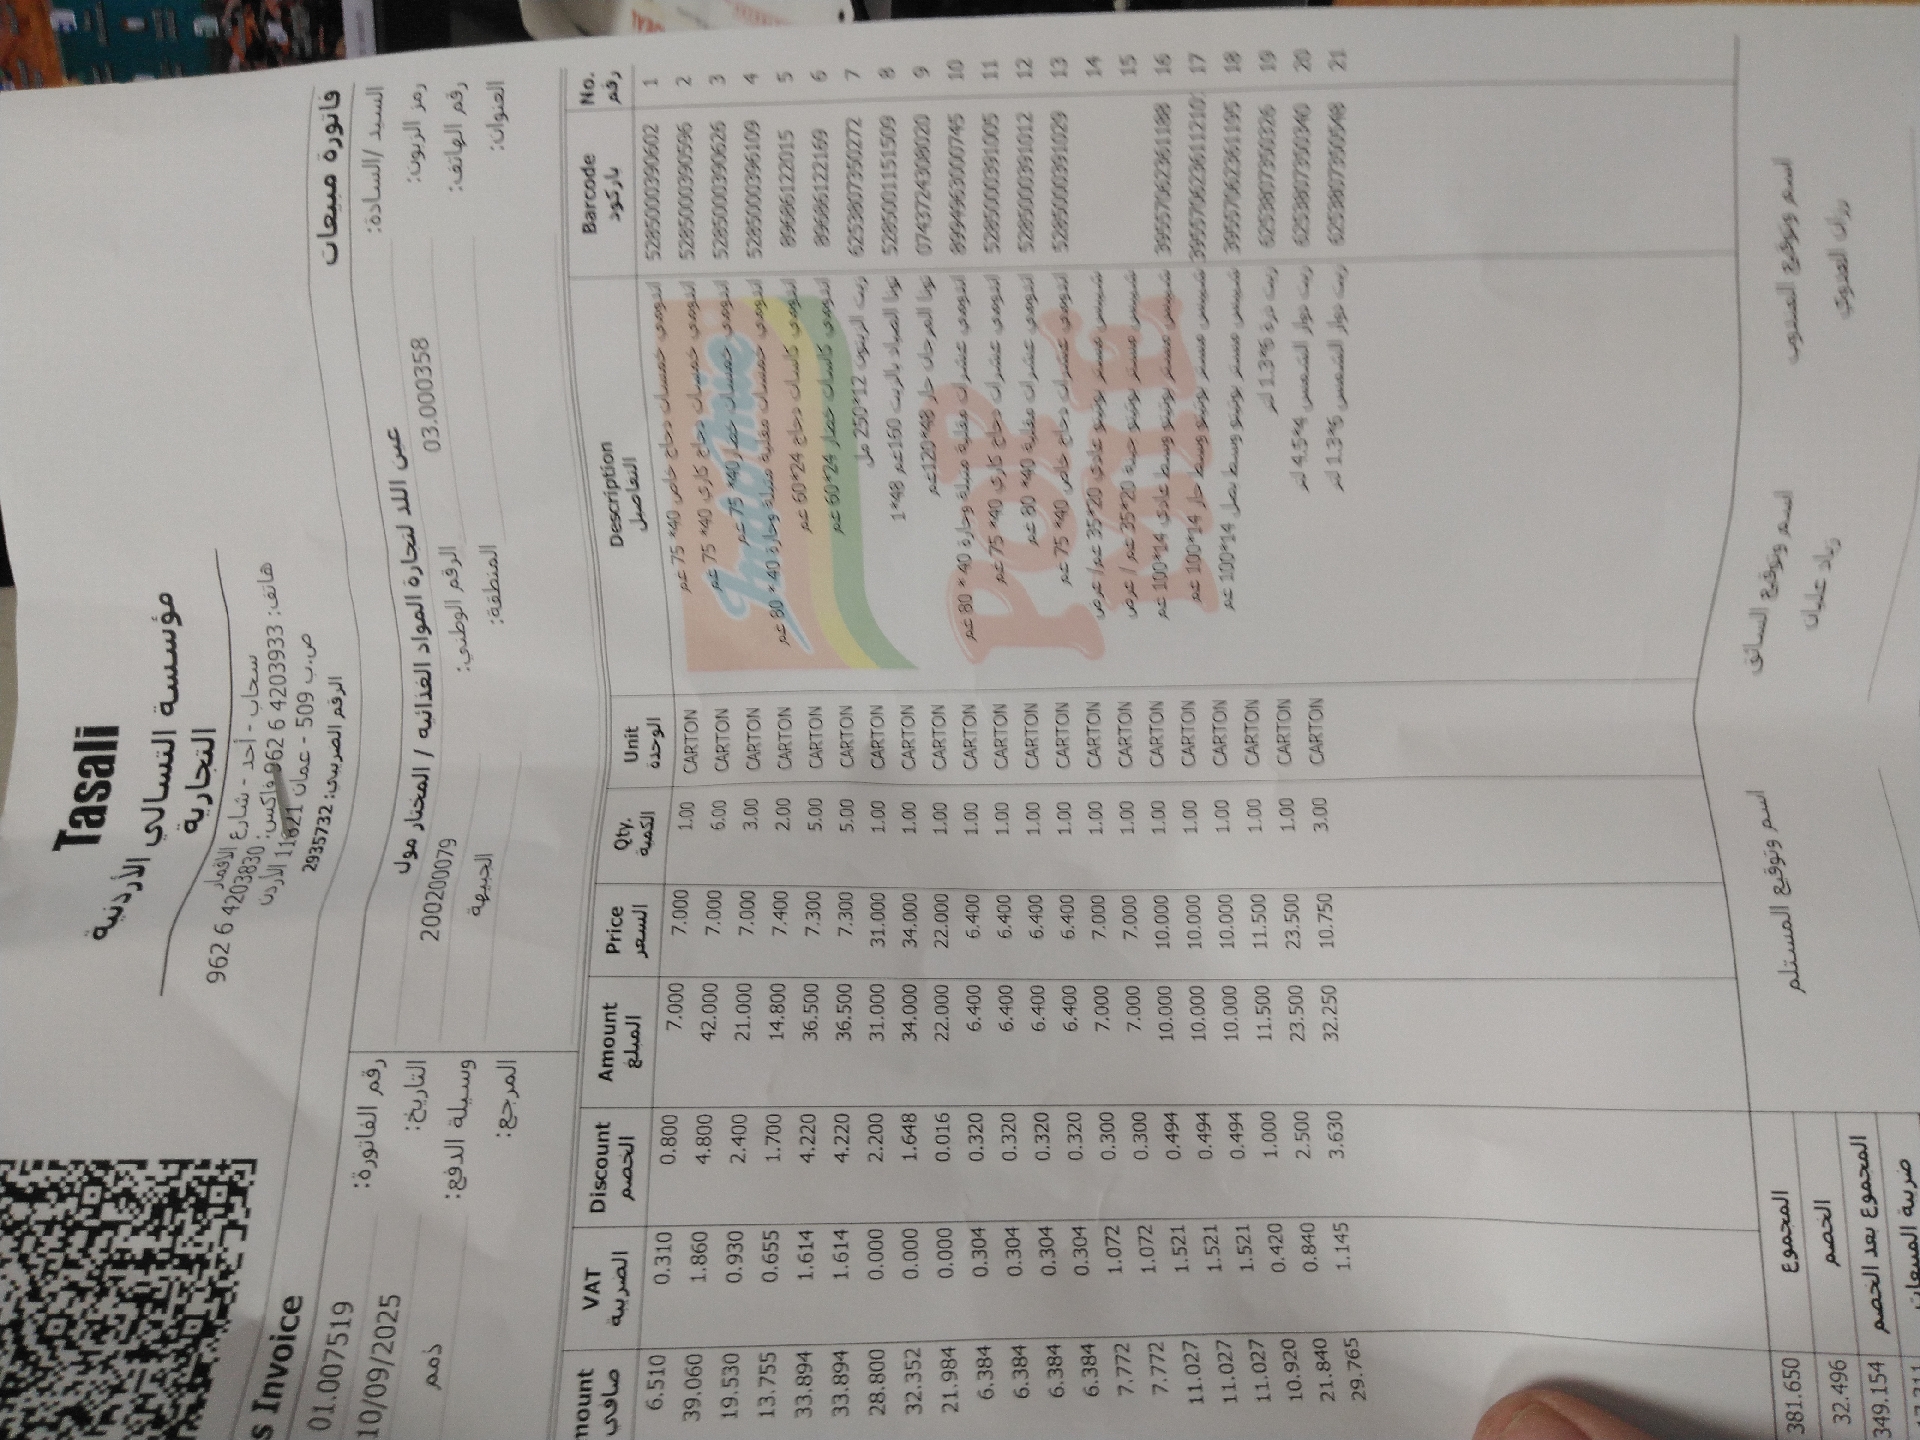 Tasali
مؤسسة التسالي الأردنية
التجارية
سحاب - أحد - شارع الأقمار
هاتف: 4203933 6 962 فاكس: 4203830 6 962
ص.ب 509 - عمان 11621 الأردن
الرقم الضريبي: 2935732
s Invoice فاتورة مبيعات
السيد /السادة: عين اللد لتجارة المواد الغذائية / المختار مول
رقم الفاتورة: 01.007519
رمز الزبون: 03.000358
الرقم الوطني: 200200079
التاريخ: 10/09/2025
رقم الهاتف:
المنطقة: الجبيهة
وسيلة الدفع: ذمم
العنوان:
المرجع:
No. Barcode Description Unit Qty. Price Amount Discount VAT mount
رقم باركود التفاصيل الوحدة الكمية السعر المبلغ الخصم الضريبة صافي
1 5285000390602 اندومي خمسات دجاج خاص 40* 75 غم CARTON 1.00 7.000 7.000 0.800 0.310 6.510
2 5285000390596 اندومي خمسات دجاج كاري 40* 75 غم CARTON 6.00 7.000 42.000 4.800 1.860 39.060
3 5285000390626 اندومي خمسات خضار 40* 75 غم CARTON 3.00 7.000 21.000 2.400 0.930 19.530
4 5285000396109 اندومي خمسات مقلية متبلة وحارة 40 * 80 غم CARTON 2.00 7.400 14.800 1.700 0.655 13.755
5 89686122015 اندومي كاسات دجاج 24*60 غم CARTON 5.00 7.300 36.500 4.220 1.614 33.894
6 89686122169 اندومي كاسات خضار 24*60 غم CARTON 5.00 7.300 36.500 4.220 1.614 33.894
7 6253807350272 زيت الزيتون 12*250 مل CARTON 1.00 31.000 31.000 2.200 0.000 28.800
8 5285001151509 تونا الصياد بالزيت 160غم 48*1 CARTON 1.00 34.000 34.000 1.648 0.000 32.352
9 0743724308020 تونا المرجان حار 48*120غم CARTON 1.00 22.000 22.000 0.016 0.000 21.984
10 8994963000745 اندومي عشرات مقلية متبلة وحارة 40 * 80 غم CARTON 1.00 6.400 6.400 0.320 0.304 6.384
11 5285000391005 اندومي عشرات دجاج كاري 40* 75 غم CARTON 1.00 6.400 6.400 0.320 0.304 6.384
12 5285000391012 اندومي عشرات مقلية 40* 80 غم CARTON 1.00 6.400 6.400 0.320 0.304 6.384
13 5285000391029 اندومي عشرات دجاج خاص 40* 75 غم CARTON 1.00 6.400 6.400 0.320 0.304 6.384
14 شيبس مستر بوتيتو عادي 20*35 غم/ عرض CARTON 1.00 7.000 7.000 0.300 1.072 7.772
15 شيبس مستر بوتيتو جبنة 20*35 غم / عرض CARTON 1.00 7.000 7.000 0.300 1.072 7.772
16 39557062361188 شيبس مستر بوتيتو وسط عادي 14*100 غم CARTON 1.00 10.000 10.000 0.494 1.521 11.027
17 شيبس مستر بوتيتو وسط حار 14*100 غم CARTON 1.00 10.000 10.000 0.494 1.521 11.027
18 39557062361195 شيبس مستر بوتيتو وسط بصل 14*100 غم CARTON 1.00 10.000 10.000 0.494 1.521 11.027
19 6253807350326 زيت ذرة 6*1.3 لتر CARTON 1.00 11.500 11.500 1.000 0.420 10.920
20 6253807350340 زيت دوار الشمس 4*4.5 لتر CARTON 1.00 23.500 23.500 2.500 0.840 21.840
21 6253807350548 زيت دوار الشمس 6*1.3 لتر CARTON 3.00 10.750 32.250 3.630 1.145 29.765
Indomie
POP MIE
اسم وتوقيع المندوب
اسم وتوقيع السائق
زياد عليان
اسم وتوقيع المستلم
المجموع 381.650
الخصم 32.496
المجموع بعد الخصم 349.154
ضريبة المبيعات